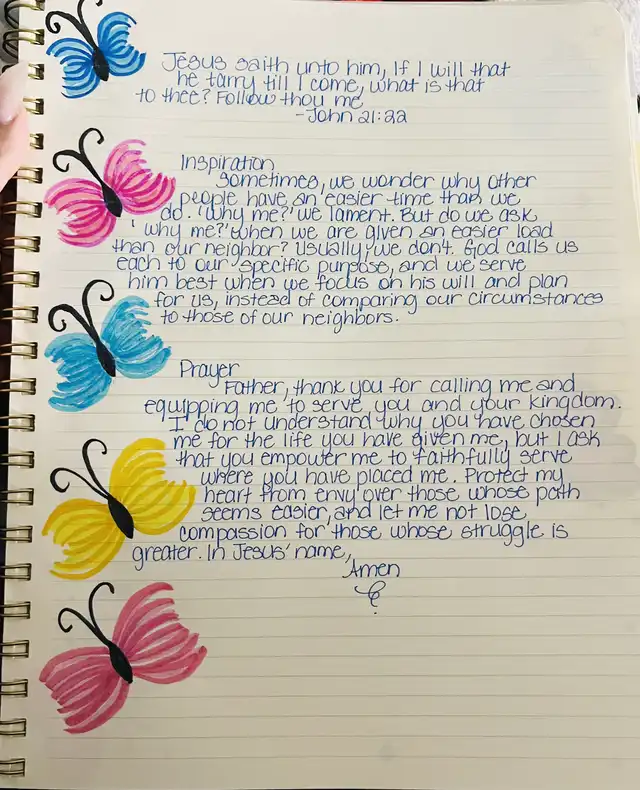 Jesus saith unto him, If I will that
he tarry till I come, what is that
to thee? Follow thou me
-John 21:22
Inspiration
Sometimes, we wonder why other
people have an easier time than we
do. "Why me?" we lament. But do we ask
"why me?" when we are given an easier load
than our neighbor? Usually, we don't. God calls us
each to our specific purpose, and we serve
him best when we focus on his will and plan
for us, instead of comparing our circumstances
to those of our neighbors.
Prayer
Father, thank you for calling me and
equipping me to serve you and your kingdom.
I do not understand why you have chosen
me for the life you have given me, but I ask
that you empower me to faithfully serve
where you have placed me. Protect my
heart from envy over those whose path
seems easier, and let me not lose
compassion for those whose struggle is
greater. In Jesus' name,
Amen